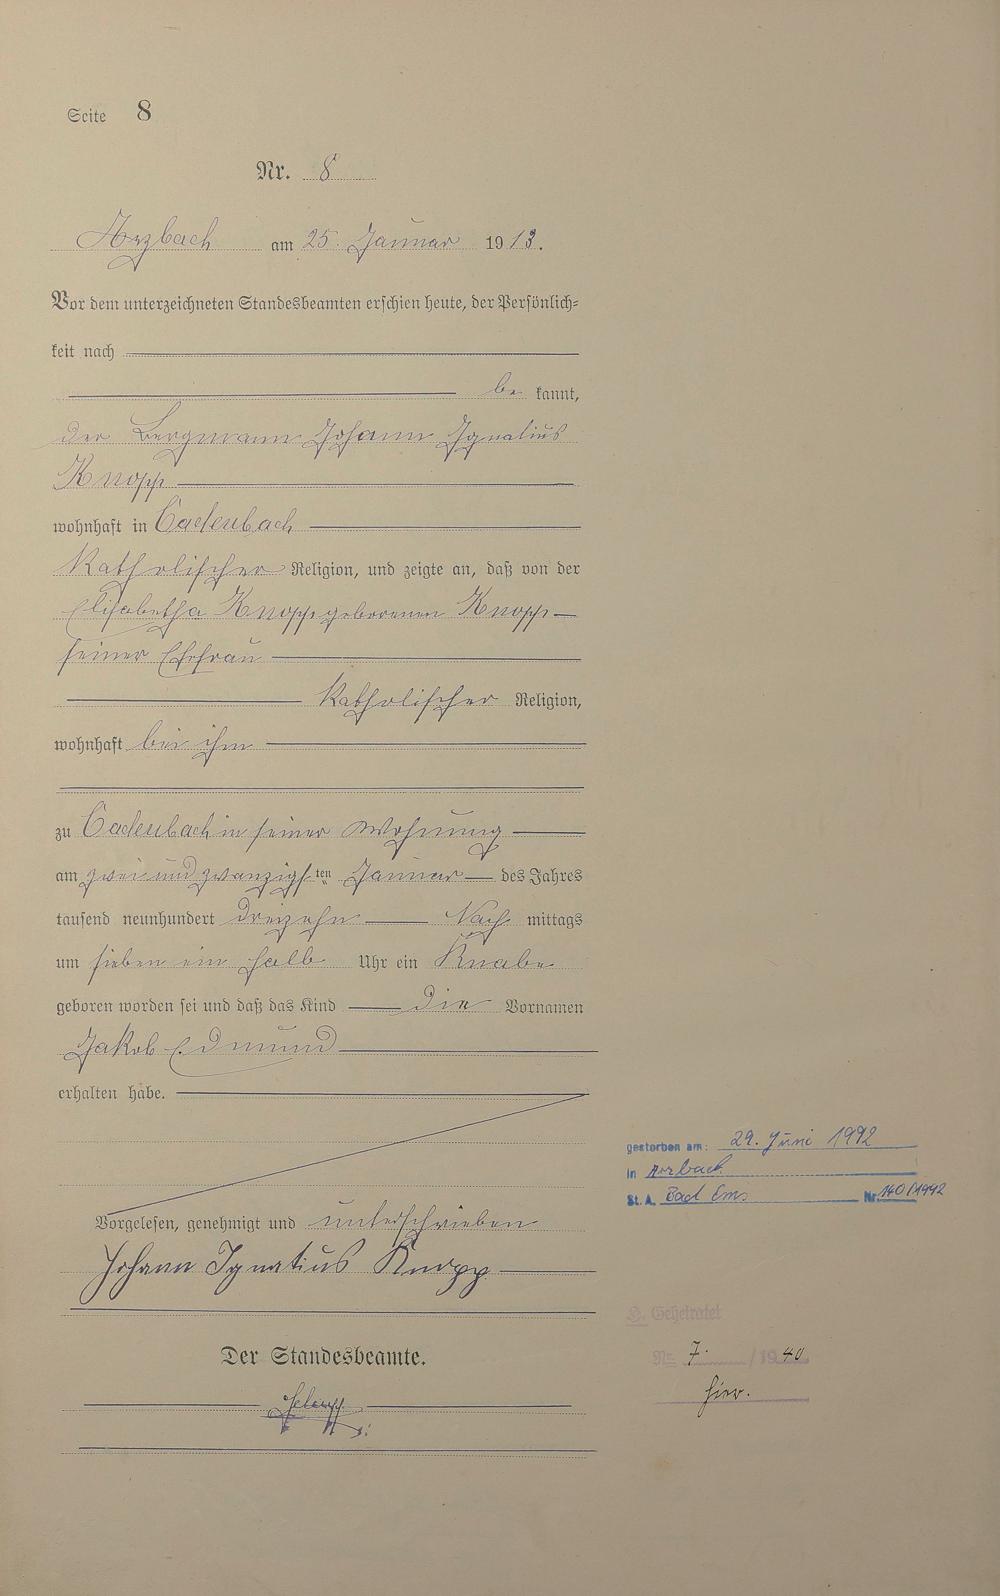 Seite 8
Nr. 8
Arzbach am 25. Januar 1913.
Vor dem unterzeichneten Standesbeamten erschien heute, der Persönlich-
keit nach
be kannt,
der Bergmann Johann Ignatius
Knopp
wohnhaft in Cadenbach
Katholischer Religion, und zeigte an, daß von der
Elisabetha Knopp geborenen Knopp
seiner Ehefrau
Katholischer Religion,
wohnhaft bei ihm
zu Cadenbach in seiner Wohnung
am zwei und zwanzigsten Januar des Jahres
tausend neunhundert dreizehn Nach mittags
um sieben ein halb Uhr ein Knabe
geboren worden sei und daß das Kind die Vornamen
Jakob Edmund
erhalten habe.
Vorgelesen, genehmigt und unterschrieben
Johann Ignatius Knopp
Der Standesbeamte.
gestorben am: 29. Juni 1992
in Arzbach
St. A. Bad Ems Nr. 140/1992
H. Geheiratet
Nr. 7. /1940
hier.